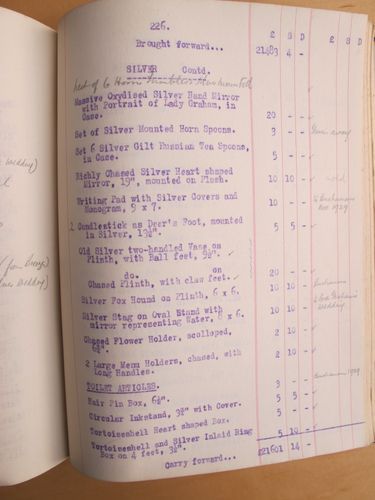 226.
£ S D £ S D
Brought forward... 21483 4 -
SILVER Contd.
Set of 6 Horn Tumblers
Massive Oxydised Silver Hand Mirror
with Portrait of Lady Graham, in
Case. 20 -
Set of Silver Mounted Horn Spoons. 3 - Given away
Set 6 Silver Gilt Russian Tea Spoons,
in Case. 5 -
Richly Chased Silver Heart shaped
Mirror, 19", mounted on Plush. 10 10 - sold
Writing Pad with Silver Covers and
Monogram, 9 x 7. 10 -
1929
Candlestick as Deer's Foot, mounted
in Silver, 13½". 5 5 -
Old Silver two-handled Vase on
Plinth, with Ball feet, 9½". 20 -
do. on
Chased Plinth, with claw feet. 10 10 -
Silver Fox Hound on Plinth, 6 x 6. 10 10 -
Silver Stag on Oval Stand with
mirror representing Water, 8 x 6. 2 10 -
Wedding
Chased Flower Holder, scolloped,
2 10 -
2 Large Menu Holders, chased, with
Long Handles. 2 10 -
TOILET ARTICLES.
Hair Pin Box, 6½". 3 -
Circular Inkstand, 3¾" with Cover. 5 5 -
Tortoiseshell Heart shaped Box. 5 -
Tortoiseshell and Silver Inlaid Ring
Box on 4 feet, 3½". 5 10 -
Carry forward... £21601 14 -